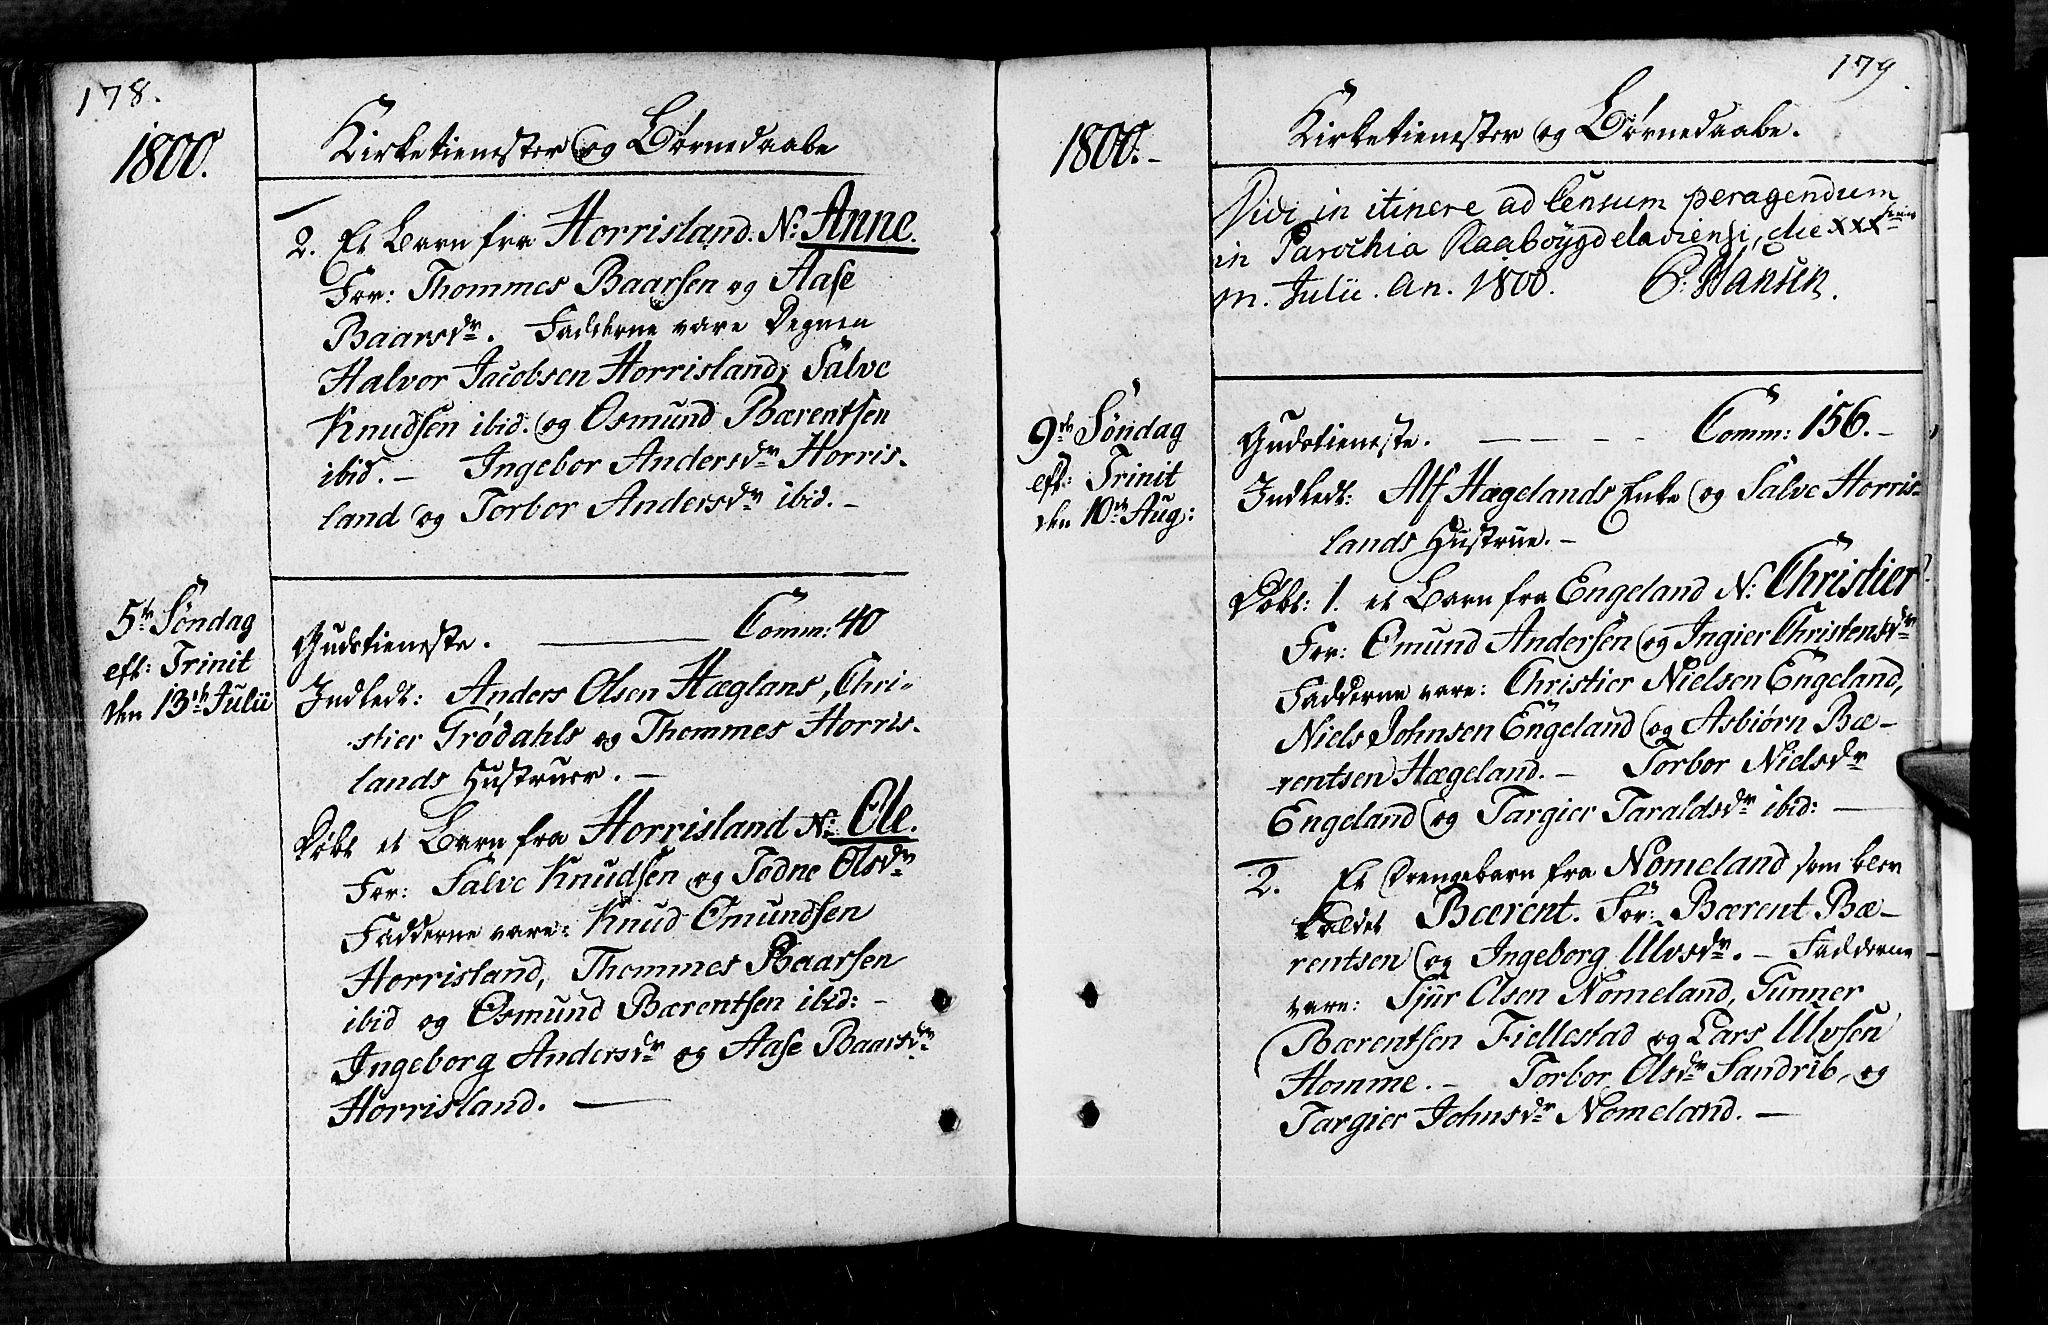 178.
1800.
Kirketienester og Børnedaabe
2. Et Barn fra Horrisland. N: Anne.
For: Thommes Baarsen og Aase
Baarsdr. Fadderne vare Degnen
Halvor Jacobsen Horrisland, Salve
Knudsen ibid. og Osmund Bærentsen
ibid. – Ingebor Andersdr Horris-
land og Torbor Andersdr ibid. –
5te Søndag
eft: Trinit
den 13de Julii
Gudstieneste. – Comm: 40
Indledt: Anders Olsen Hæglans, Chri-
stier Trødahls og Thommes Horris-
lands Hustruer. –
Døbt et Barn fra Horrisland N: Ole.
For: Salve Knudsen og Todne Olsdr
Fadderne vare: Knud Omundsen
Horrisland, Thommes Baarsen
ibid og Osmund Bærentsen ibid: –
Ingeborg Andersdr og Aase Baarsdr
Horrisland. –
179.
1800. –
Kirketienester og Børnedaabe.
Vidi in itinere ad Censum peragendum
in Parochia Raabøygdelaviensi, die xxx
m. Julii. An. 1800. P. Hansen.
9de Søndag
eft: Trinit
den 10de Aug:
Gudstieneste. – – – – Comm: 156. –
Indledt: Alf Hægelands Enke og Salve Horris-
lands Hustrue. –
Døbt: 1. et Barn fra Engeland N: Christier
For: Omund Andersen og Ingier Christensdr
Fadderne vare: Christier Nielsen Engeland,
Niels Johnsen Engeland og Asbiørn Bæ-
rentsen Hægeland. – Torbor Nielsdr
Engeland og Targier Taraldsdr ibid: –
2. Et Drengebarn fra Nomeland som blev
kaldet Bærent. For: Bærent Bæ-
rentsen og Ingeborg Ulvsdr. – Fadderne
vare: Sjur Olsen Nomeland, Gunner
Bærentsen Fiellestad og Lars Ulvsen
Homme. – Torbor Olsdr Sandrib, og
Targier Johnsdr Nomeland. –